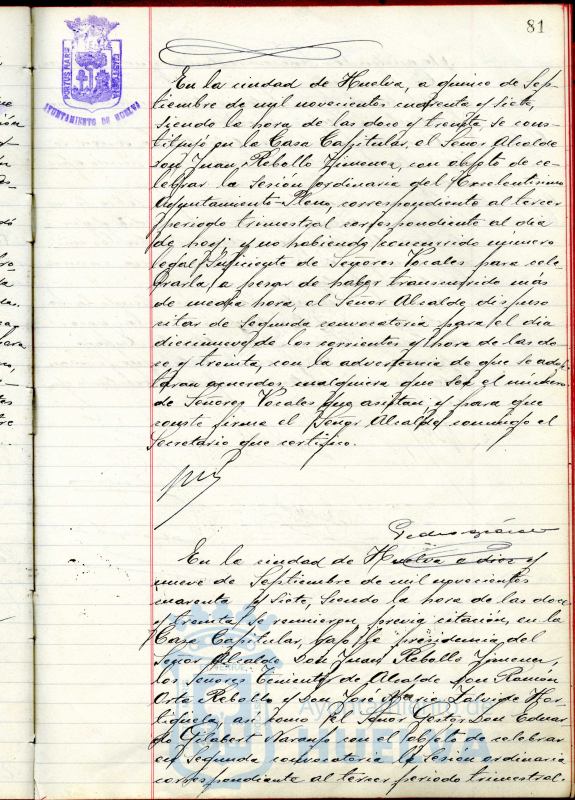 81
PORTUS MARIS
CUSTODIA
AYUNTAMIENTO DE HUELVA
En la ciudad de Huelva, a quince de Sep-
tiembre de mil novecientos cuarenta y siete,
siendo la hora de las doce y treinta, se cons-
tituyó en la Casa Capitular, el Señor Alcalde
Don Juan Rebollo Jimenez, con objeto de ce-
lebrar la Sesión ordinaria del Excelentísimo
Ayuntamiento Pleno, correspondiente al tercer
periodo trimestral correspondiente al dia
de hoy; y no habiendo concurrido número
legal suficiente de Señores Vocales para cele-
brarla, a pesar de haber transcurrido más
de media hora, el Señor Alcalde dispuso
citar de segunda convocatoria para el dia
diecinueve de los corrientes y hora de las do-
ce y treinta, con la advertencia de que se adop-
taran acuerdos, cualquiera que sea el número
de Señores Vocales que asistan; y para que
conste firma el Señor Alcalde conmigo el
Secretario que certifico.
En la ciudad de Huelva a diez y
nueve de Septiembre de mil novecientos
cuarenta y siete, siendo la hora de las doce
y treinta se reunieron, previa citación, en la
Casa Capitular, bajo la presidencia del
Señor Alcalde Don Juan Rebollo Jimenez,
los Señores Tenientes de Alcalde Don Ramón
Orta Rebollo y Don José Maria
as como el Señor Gestor Don Eduar-
do Gilabert Naranjo con el objeto de celebrar
en Segunda convocatoria la sesión ordinaria
correspondiente al tercer periodo trimestral.
Ayuntamiento de
HUELVA